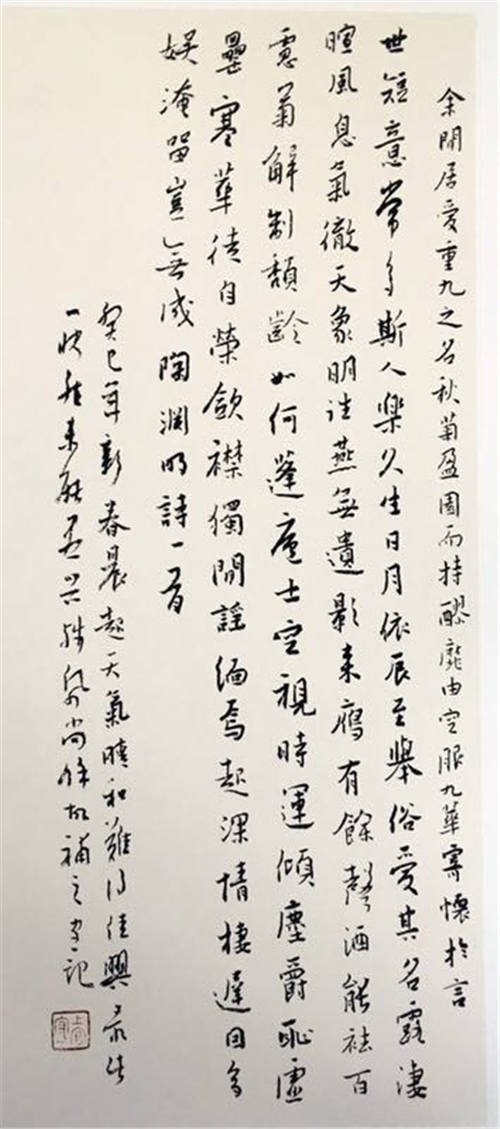 余閒居愛重九之名秋菊盈園而持醪靡由空服九華寄懷於言
世短意常多斯人樂久生日月依辰至舉俗愛其名露淒
暄風息氣徹天象明往燕無遺影来雁有餘聲酒能祛百
慮菊解制頹齡如何蓬廬士空視時運傾塵爵恥虛
罍寒華徒自榮斂襟獨閒謠緬焉起深情棲遲固多
娛淹留豈無成陶淵明詩一首
癸巳年新春晨起天氣晴和難得佳興录此
一快然未能尽兴尚餘故補之記